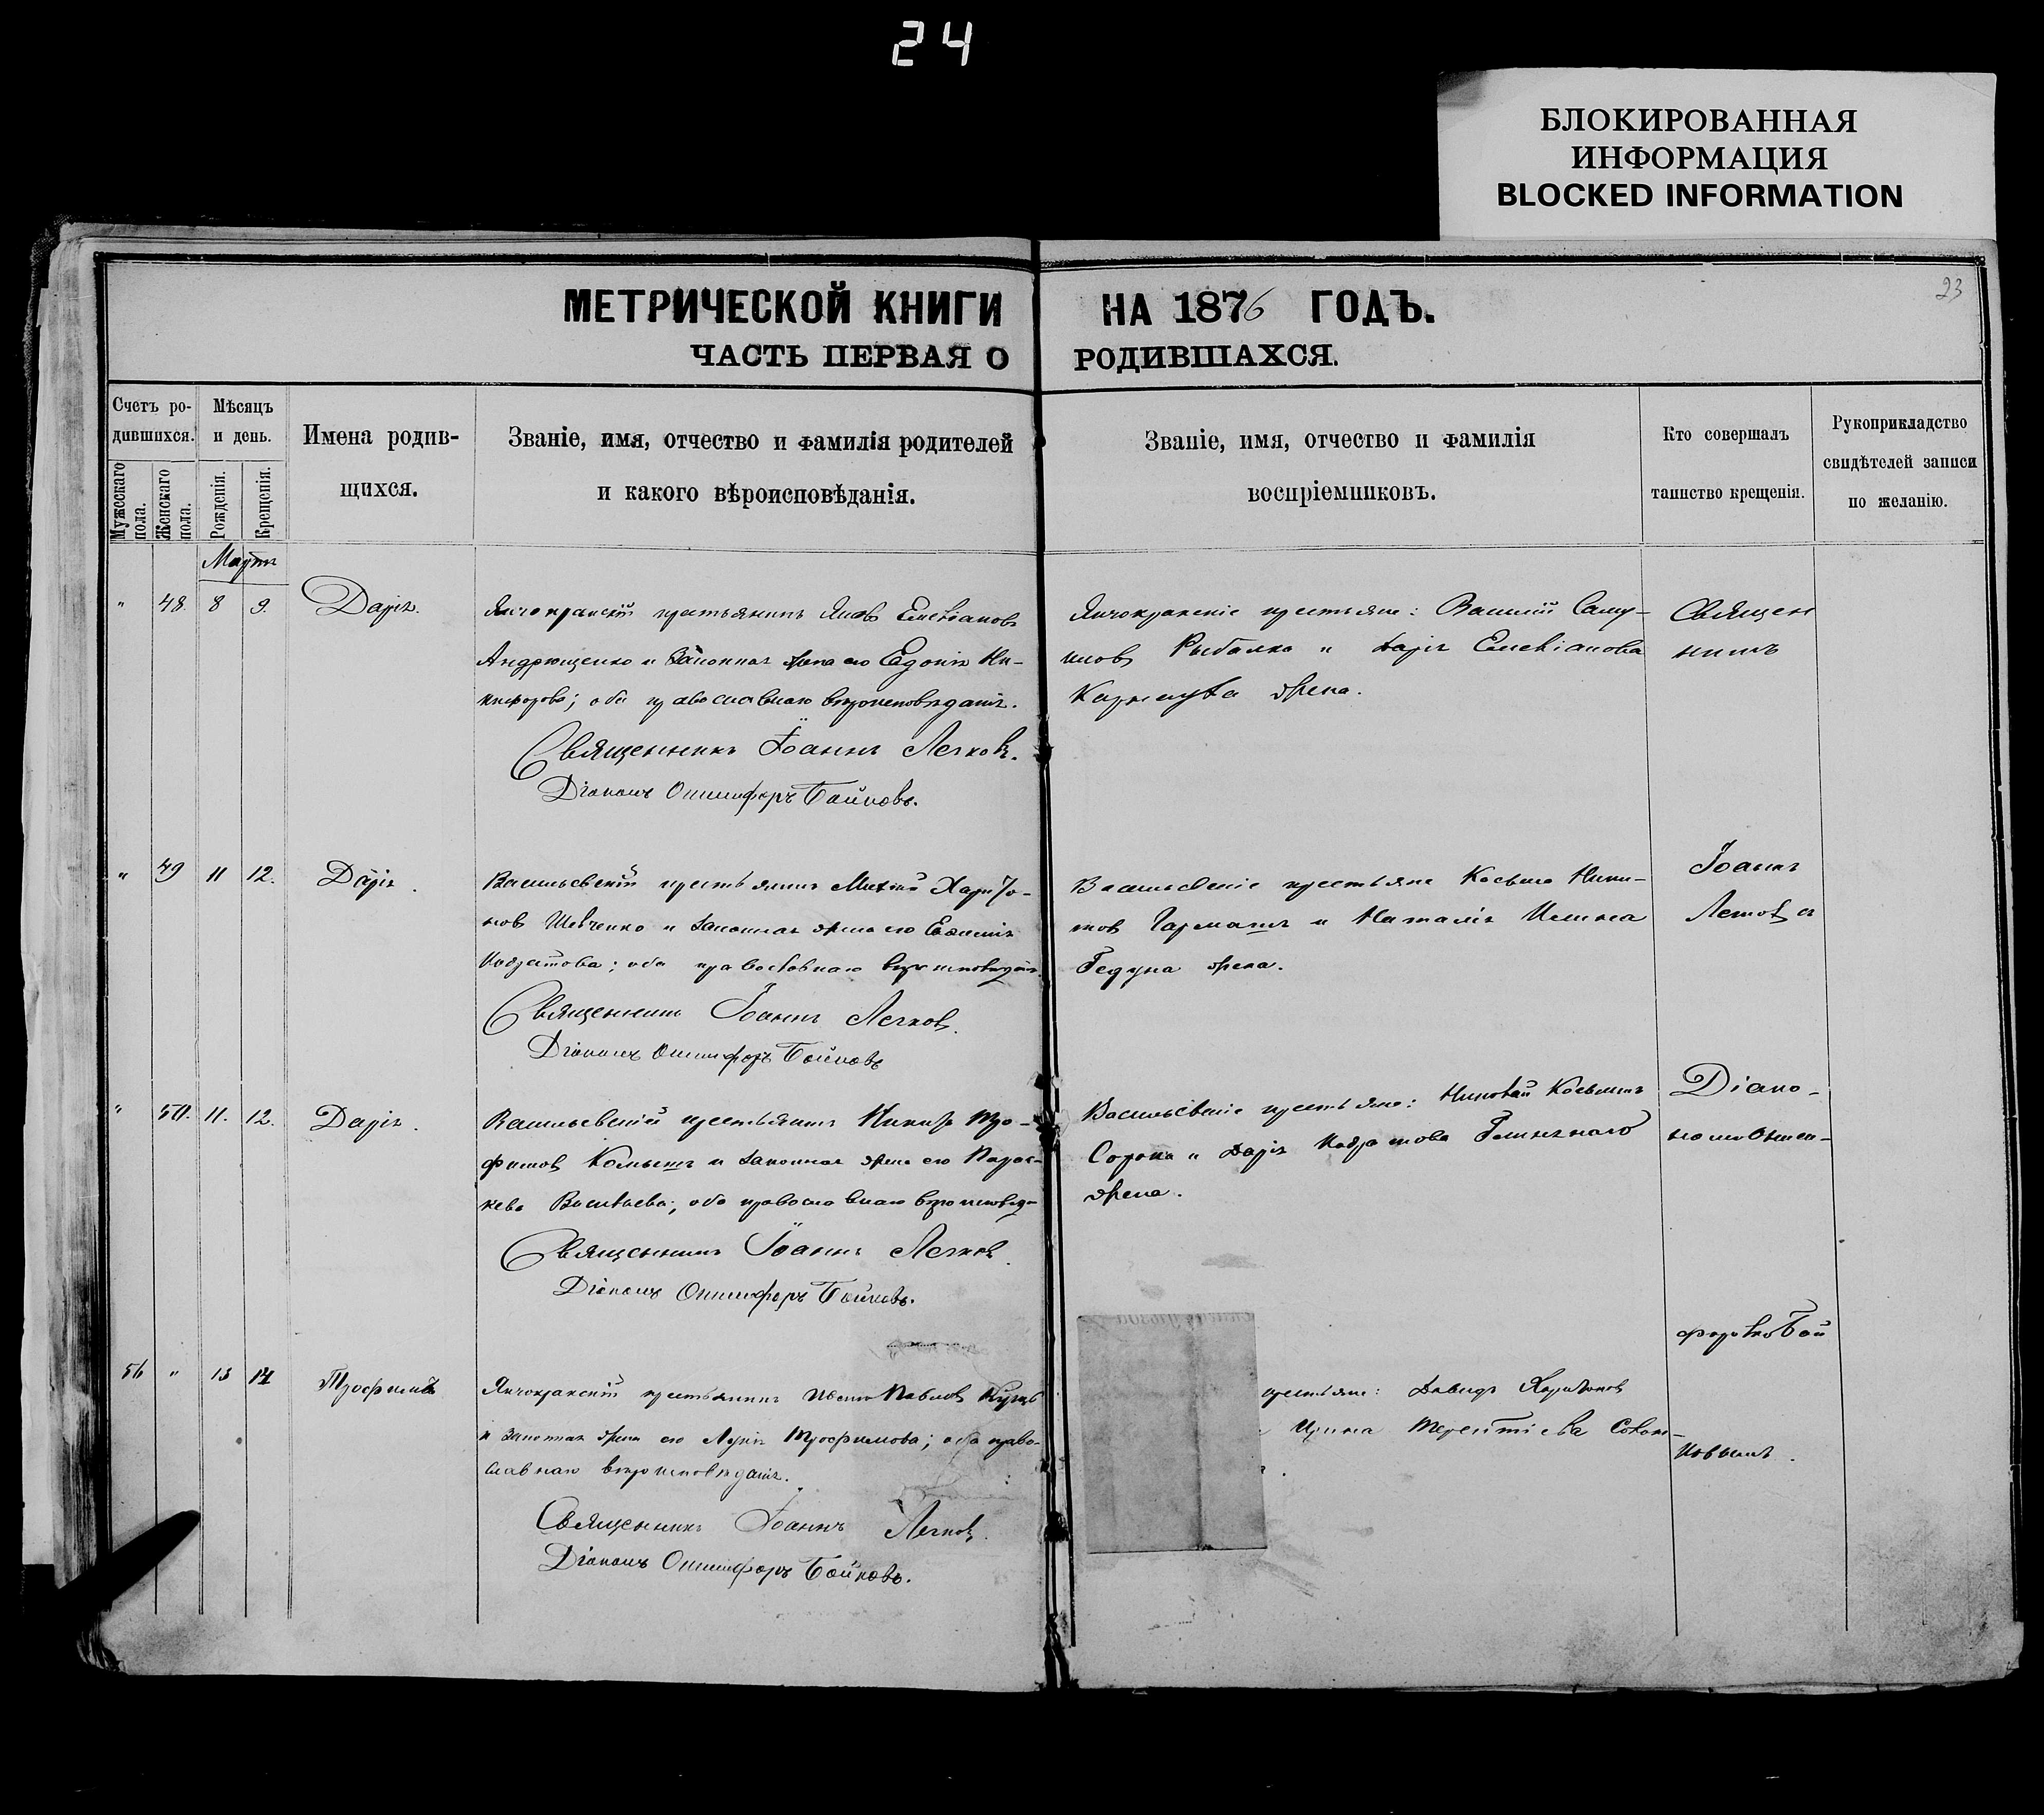 24
БЛОКИРОВАННАЯ
ИНФОРМАЦИЯ
BLOCKED INFORMATION
23
МЕТРИЧЕСКОЙ КНИГИ НА 1876 ГОДЪ.
ЧАСТЬ ПЕРВАЯ О РОДИВШАХСЯ.
Счетъ ро-
дившихся.
Мужескаго пола.
Женскаго пола.
Мѣсяцъ
и день.
Рожденія.
Крещенія.
Имена родив-
щихся.
Званіе, имя, отчество и фамилія родителей
и какого вѣроисповѣданія.
Званіе, имя, отчество и фамилія
воспріемниковъ.
Кто совершалъ
таинство крещенія.
Рукоприкладство
свидѣтелей записи
по желанію.
Мартъ
" 48. 8 9. Дарія.
Янчокракскій крестьянинъ Яковъ Емеліановъ
Андрющенко и законная жена его Евдокія Ни-
кифорова; оба православнаго вѣроисповѣданія.
Священникъ Іоаннъ Легковъ.
Діаконъ Онисифоръ Бойковъ.
Янчокракскіе крестьяне: Василій Саму-
иловъ Рыбалка и Дарія Емеліанова
жена.
" 49 11 12. Дарія.
Васильевскій крестьянинъ Михаилъ Харито-
новъ Шевченко и законная жена его Евфимія
Кодратова; оба православнаго вѣроисповѣданія
Священникъ Іоаннъ Легковъ.
Діаконъ Онисифоръ Бойковъ
Васильевскіе крестьяне Косьма Ники-
товъ Гармашъ и Наталія Ильина
жена.
" 50. 11. 12. Дарія.
Васильевскій крестьянинъ Никита Тро-
фимовъ и законная жена его Парас-
кева Васильева; оба православнаго вѣроисповѣд-
Священникъ Іоаннъ Легковъ.
Діаконъ Онисифоръ Бойковъ.
Васильевскіе крестьяне: Николай Косьминъ
Сорока и Дарія Кодратова
жена.
56 " 13 14 Трофимъ
Янчокракскій крестьянинъ Павловъ
и законная жена его Трофимова; оба право-
славнаго вѣроисповѣданія.
Священникъ Іоаннъ Легковъ.
Діаконъ Онисифоръ Бойковъ.
крестьяне: Давидъ Харитоновъ
Ирина Терентіева
Священ
никъ
Іоаннъ
Легковъ съ
Діако-
номъ Ониси-
форомъ Бой
ковымъ.